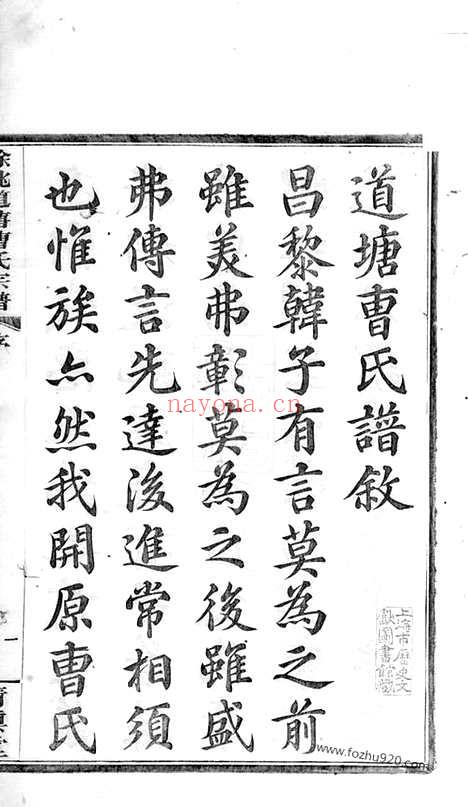 道塘曺氏譜敘
昌黎韓子有言莫為之前
雖美弗彰莫為之後雖盛
弗傳言先達後進常相須
也惟族亦然我開原曺氏
氏宗譜
nayona.cn
上海市歷史文
獻圖書館藏
www.fozhu920.com